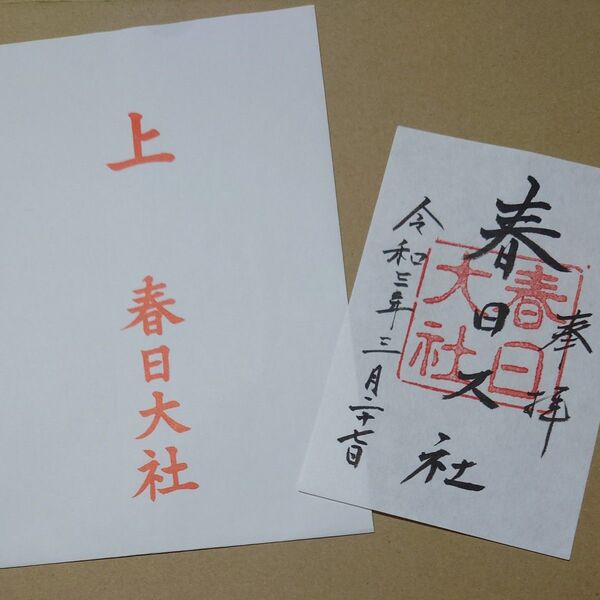 上
春日大社
奉拝
春日大社
春日大社
令和三年三月二十七日